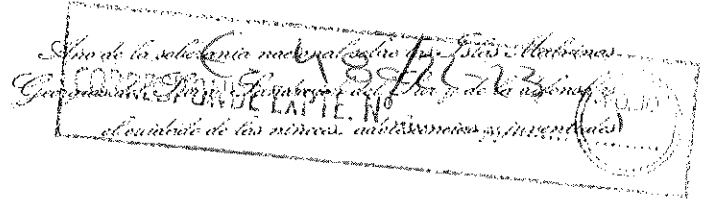 Año de la soberanía nacional sobre las Islas Malvinas
Georgias del Sur, Sandwich del Sur y de la
el cuidado de las niñeces, adolescencias y juventudes
CORRESPONDE EXPTE. Nº
FOLIO